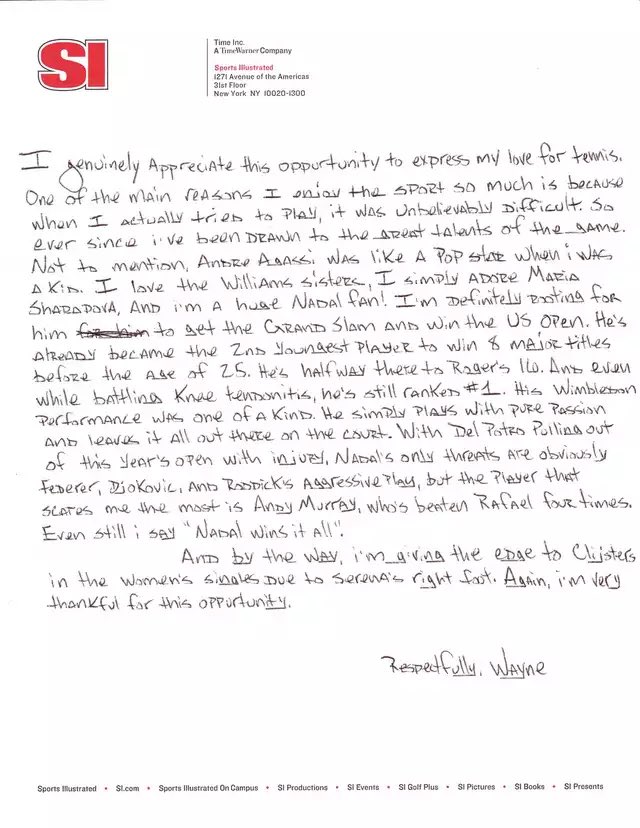 SI
Time Inc.
A TimeWarner Company
Sports Illustrated
1271 Avenue of the Americas
31st Floor
New York NY 10020-1300
I genuinely Appreciate this opportunity to express my love for tennis.
One of the main reasons I enjoy the sport so much is because
when I actually tried to play, it was unbelievably difficult. So
ever since i've been drawn to the great talents of the game.
Not to mention, Andre Agassi was like a Pop star when i was
a kid. I love the Williams sisters, I simply adore Maria
Sharapova, and i'm a huge Nadal fan! I'm definitely rooting for
him for him to get the Grand Slam and win the US Open. He's
already became the 2nd youngest player to win 8 major titles
before the age of 25. He's halfway there to Roger's 16. And even
while battling knee tendonitis, he's still ranked #1. His Wimbledon
performance was one of a kind. He simply plays with pure passion
and leaves it all out there on the court. With Del Potro pulling out
of this year's open with injury, Nadal's only threats are obviously
Federer, Djokovic, and Roddick's aggressive play, but the player that
scares me the most is Andy Murray, who's beaten Rafael four times.
Even still i say "Nadal wins it all".
And by the way, i'm giving the edge to Clijsters
in the women's singles due to Serena's right foot. Again, i'm very
thankful for this opportunity.
Respectfully, Wayne
Sports Illustrated • SI.com • Sports Illustrated On Campus • SI Productions • SI Events • SI Golf Plus • SI Pictures • SI Books • SI Presents